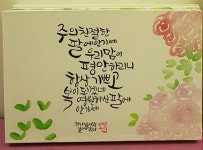 주의 친절한
팔에 안기세
우리 맘이
평안하리니
항상 기쁘고
복이 되겠네
영원하신 팔에
안기세